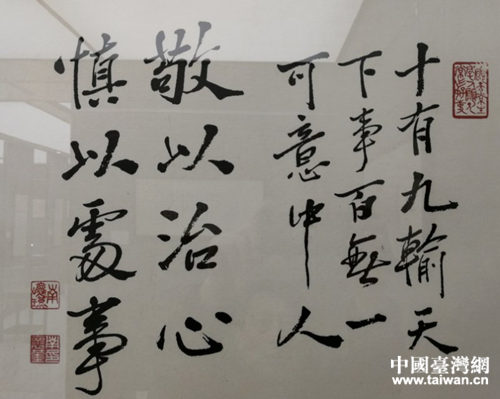 十有九輸天
下事百無一
可意中人
敬以治心
慎以處事
中國臺灣網
www.taiwan.cn